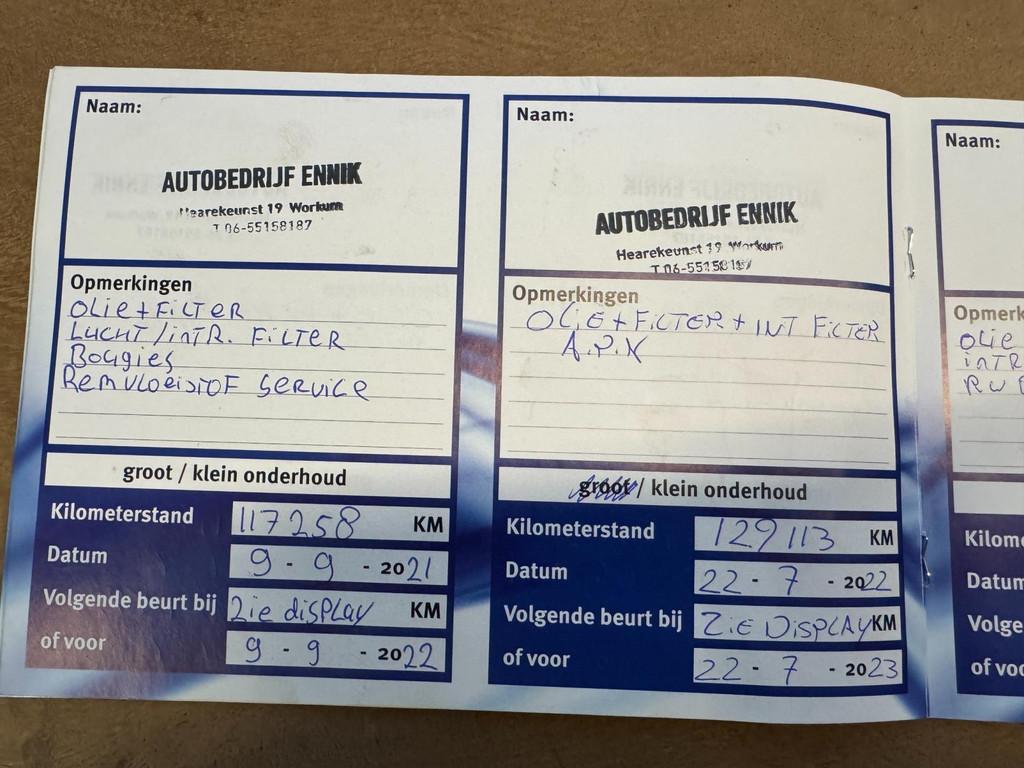 Naam:
AUTOBEDRIJF ENNIK
Hearekeunst 19 Workum
T 06-55158187
Opmerkingen
OLie + FiLTER
LUCHT / inTR. FiLTER
Bougies
Remvloeistof service
groot / klein onderhoud
Kilometerstand 117258 KM
Datum 9 - 9 - 2021
Volgende beurt bij Zie disPLAY KM
of voor 9 - 9 - 2022
Naam:
AUTOBEDRIJF ENNIK
Hearekeunst 19 Workum
T 06-55158187
Opmerkingen
OLiE + FiLTER + INT FiLTER
A.P.K
groot / klein onderhoud
Kilometerstand 129113 KM
Datum 22 - 7 - 2022
Volgende beurt bij ZiE DiSPLAY KM
of voor 22 - 7 - 2023
Naam:
Opmerk
OLie
inTR
Kilom
Datum
Volge
of voo